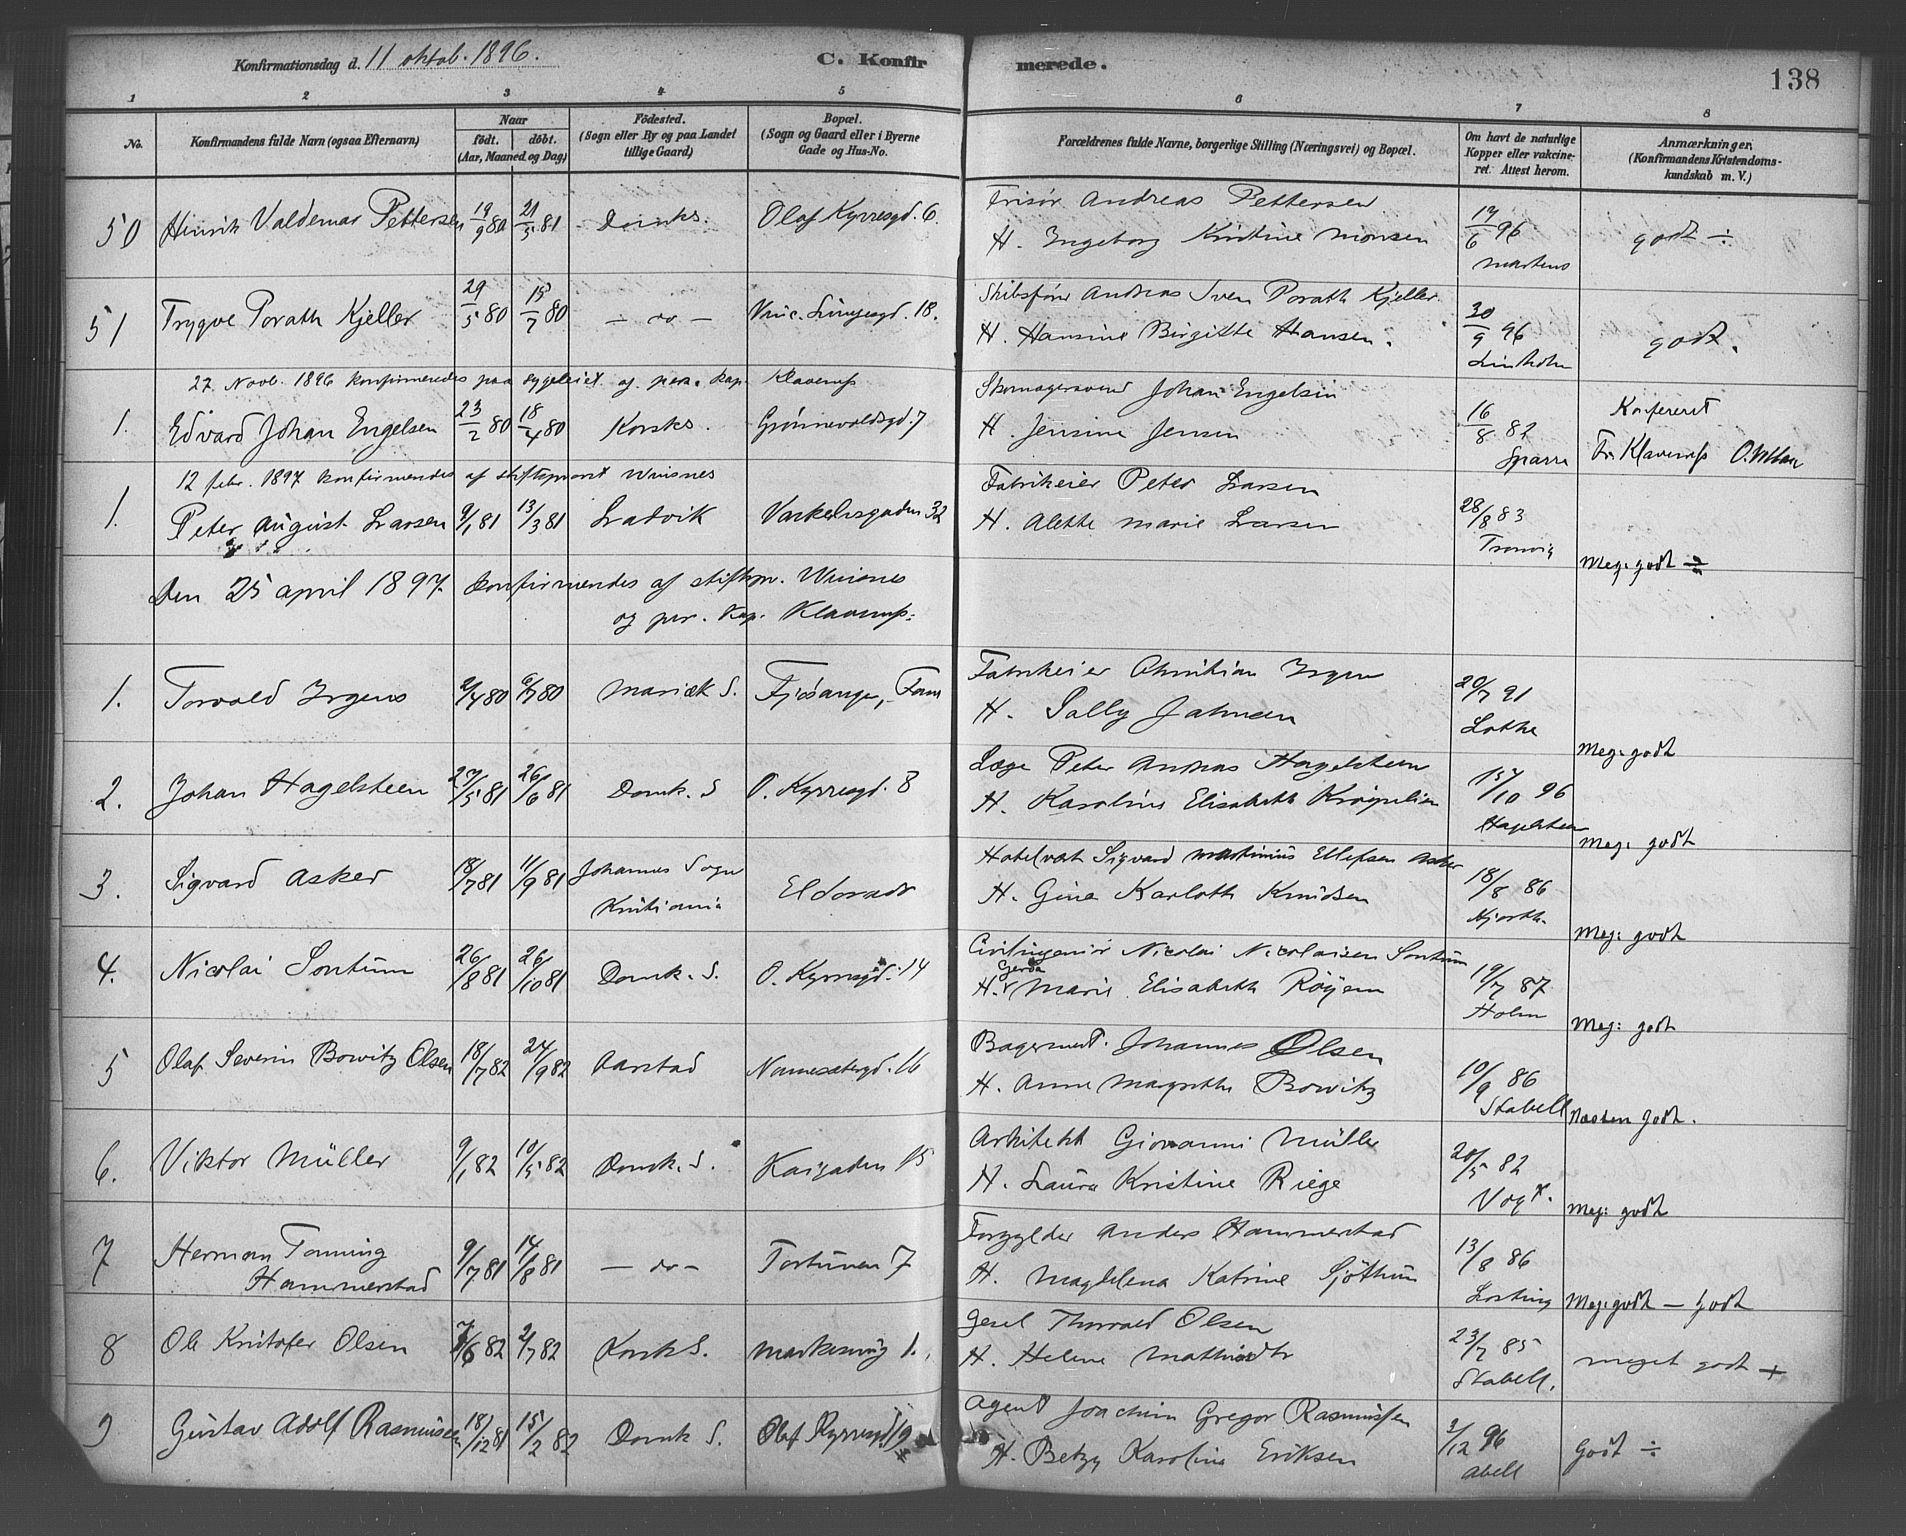 Konfirmationsdag d. 11 oktob. 1896. C. Konfirmerede. 138
1 2 3 4 5 6 7 8
No. Konfirmandens fulde Navn (ogsaa Efternavn) Naar födt. döbt. (Aar, Maaned og Dag) Födested. (Sogn eller By og paa Landet tillige Gaard) Bopæl. (Sogn og Gaard eller i Byerne Gade og Hus-No. Forældrenes fulde Navne, borgerlige Stilling (Næringsvei) og Bopæl. Om havt de naturlige Kopper eller vakcineret. Attest herom. Anmærkninger. (Konfirmandens Kristendomskundskab m. V.)
50 Hinrik Valdemar Pettersen 19/9 80 21/5 81 Domks. Olaf Kyrresgd. 6. Frisör Andreas Pettersen
H. Ingeborg Kristine Monsen 17/6 96 Martens godt ÷
51 Trygve Porath Kjeller 29/5 80 15/7 80 — do — 18. Skibsförer Andreas Sven Porath Kjeller
H. Hansine Birgitte Hansen. 30/9 96 Lindholm godt.
27 Novb. 1896 konfirmeredes paa sygeleiet af pers. kap. Klaverness
1. Edvard Johan Engelsen 23/2 80 18/4 80 Korsks. Grönnevoldsgd. 7 Skomagersvend Johan Engelsen
H. Jensine Jensen 16/8 82 Sparre Konfereret Fr. Klaverness
12 febr. 1897 konfirmeredes af stiftsprovst Wiisnes
1. Peter August Larsen 9/1 81 13/3 81 Ladvik 32 Fabrikeier Peter Larsen
H. Alette Marie Larsen 28/8 83 Meg. godt ÷
Den 25 april 1897 konfirmeredes af stiftspr. Wiisnes
og per. Kap. Klaverness:
1. Torvald Irgens 2/4 80 6/7 80 Mariæk S. Fjösanger, Fane Fabrikeier Christian Irgens
H. Sally Jahnsen 20/7 91 Lothe Meg. godt
2. Johan Hagelsteen 27/5 81 26/6 81 Domk. S O. Kyrresgd. 8 Læge Peter Andreas Hagelsteen
H. Karoline Elisabeth 15/10 96 Hagelsteen Meg: godt
3. Sigvard Asker 18/7 81 11/9 81 Johannes Sogn Kristiania Eldorado Hotelvært Sigvard Martinius Ellefsen Asker
H. Gina Karlotte Knudsen 18/8 86 Hjorth. Meg: godt
4. Nicolai Sontum 26/8 81 26/10 81 Domk. S. O. Kyrresgd. 14 Civilingeniör Nicolai Nicolaisen Sontum
H. Gerda Marie Elisabeth Röyem 19/7 87 Holm Meg: godt
5 Olaf Severin Bowitz Olsen 18/7 82 24/9 82 Aarstad Nonnesætergd. 16 Bagermest. Johannes Olsen
H. Anne Magrethe Bowitz 10/9 86 Stabell Næsten godt.
6. Viktor Müller 9/1 82 10/5 82 Domk. S. Kaigaden 15 Arkitekt Giovanni Müller
H. Laura Kristine Riege 20/5 82 Vogt. Meg: godt
7 Herman Tonning
Hammerstad 9/7 81 14/8 81 — do — Torturen 7 Forgylder Anders Hammerstad
H. Magdelena Katrine Sjöthun 13/8 86 Meg: godt — godt
8 Ole Kristofer Olsen 7/6 82 2/7 82 Korsk S. Markesmug 1. Gesel Thorvald Olsen
H. Helene Mathisdtr 23/7 85 Stabell. meget godt +
9 Gustav Adolf Rasmussen 18/12 81 15/2 82 Domk S. Olaf Kyrresgd 19 Agent Joachim Gregor Rasmussen
H. Betzy Karoline Eriksen 3/12 96 Abell Godt ÷